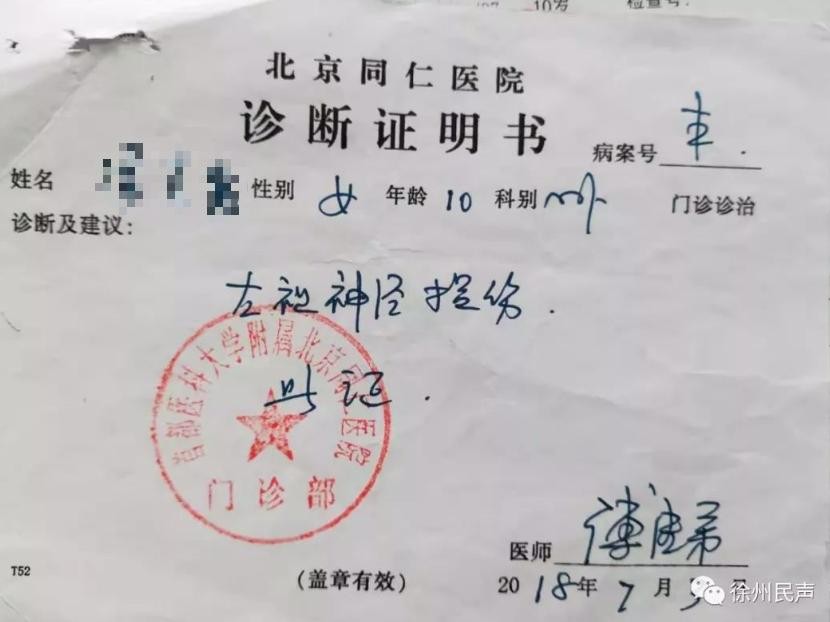 10岁 检查号:
北京同仁医院
诊断证明书
病案号
姓名 性别 女 年龄 10 科别 门诊诊治
诊断及建议:
左视神经损伤.
此证.
首都医科大学附属北京同仁医院
门诊部
医师
T52 (盖章有效) 2018年7月
徐州民声